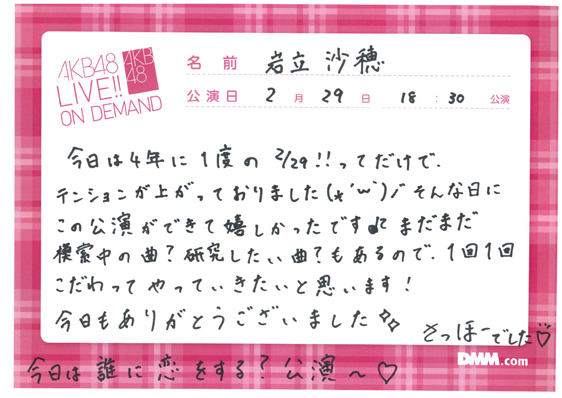 AKB48
LIVE!!
ON DEMAND
AKB
48
名 前 岩立 沙穂
公演日 2 月 29 日 18 : 30 公演
今日は4年に1度の 2/29!!ってだけで、
テンションが上がっておりました(*'ω')ノ そんな日に
この公演ができて嬉しかったです♪ まだまだ
模索中の曲?研究したい曲?もあるので、1回1回
こだわって やっていきたいと思います!
今日もありがとうございました✧✧
さっほーでした♡
DMM.com
今日は誰に恋をする?公演~♡